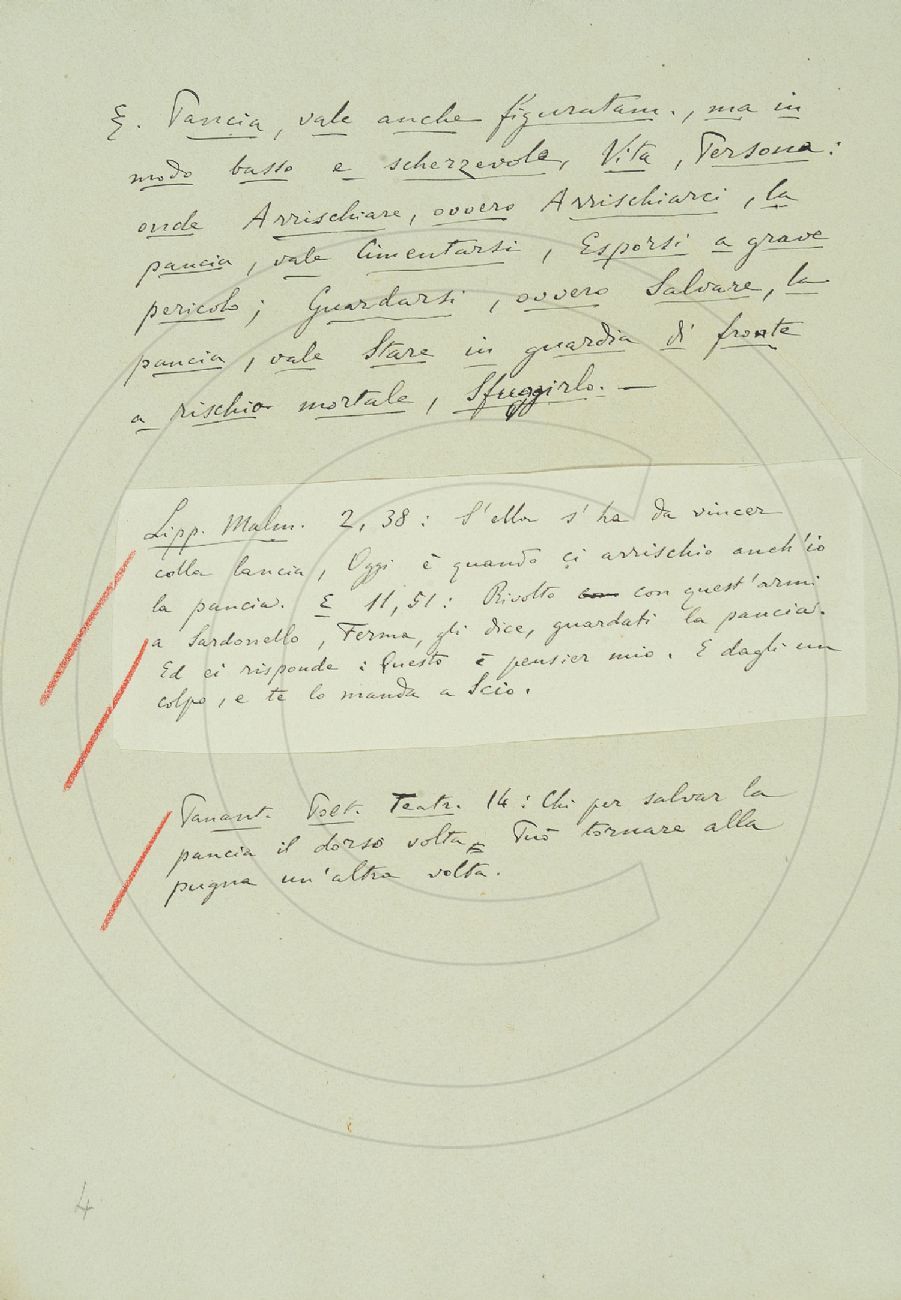 §. Pancia, vale anche figuratam., ma in
modo basso e scherzevole, Vita, Persona:
onde Arrischiare, ovvero Arrischiarci, la
pancia, vale Cimentarsi, Esporsi a grave
pericolo; Guardarsi, ovvero Salvare, la
pancia, vale Stare in guardia di fronte
a rischio mortale, Sfuggirlo. —
Lipp. Malm. 2, 38: S'ella s'ha da vincer
colla lancia, Oggi è quando ci arrischio anch'io
la pancia. E 11, 51: Rivolto con quest'armi
a Sardonello, Ferma, gli dice, guardati la pancia.
Ed ei risponde: Questo è pensier mio. E dagli un
colpo, e te lo manda a Scio.
Panant. Poet. Teatr. 14: Chi per salvar la
pancia il dorso volta, Può tornare alla
pugna un'altra volta.
4